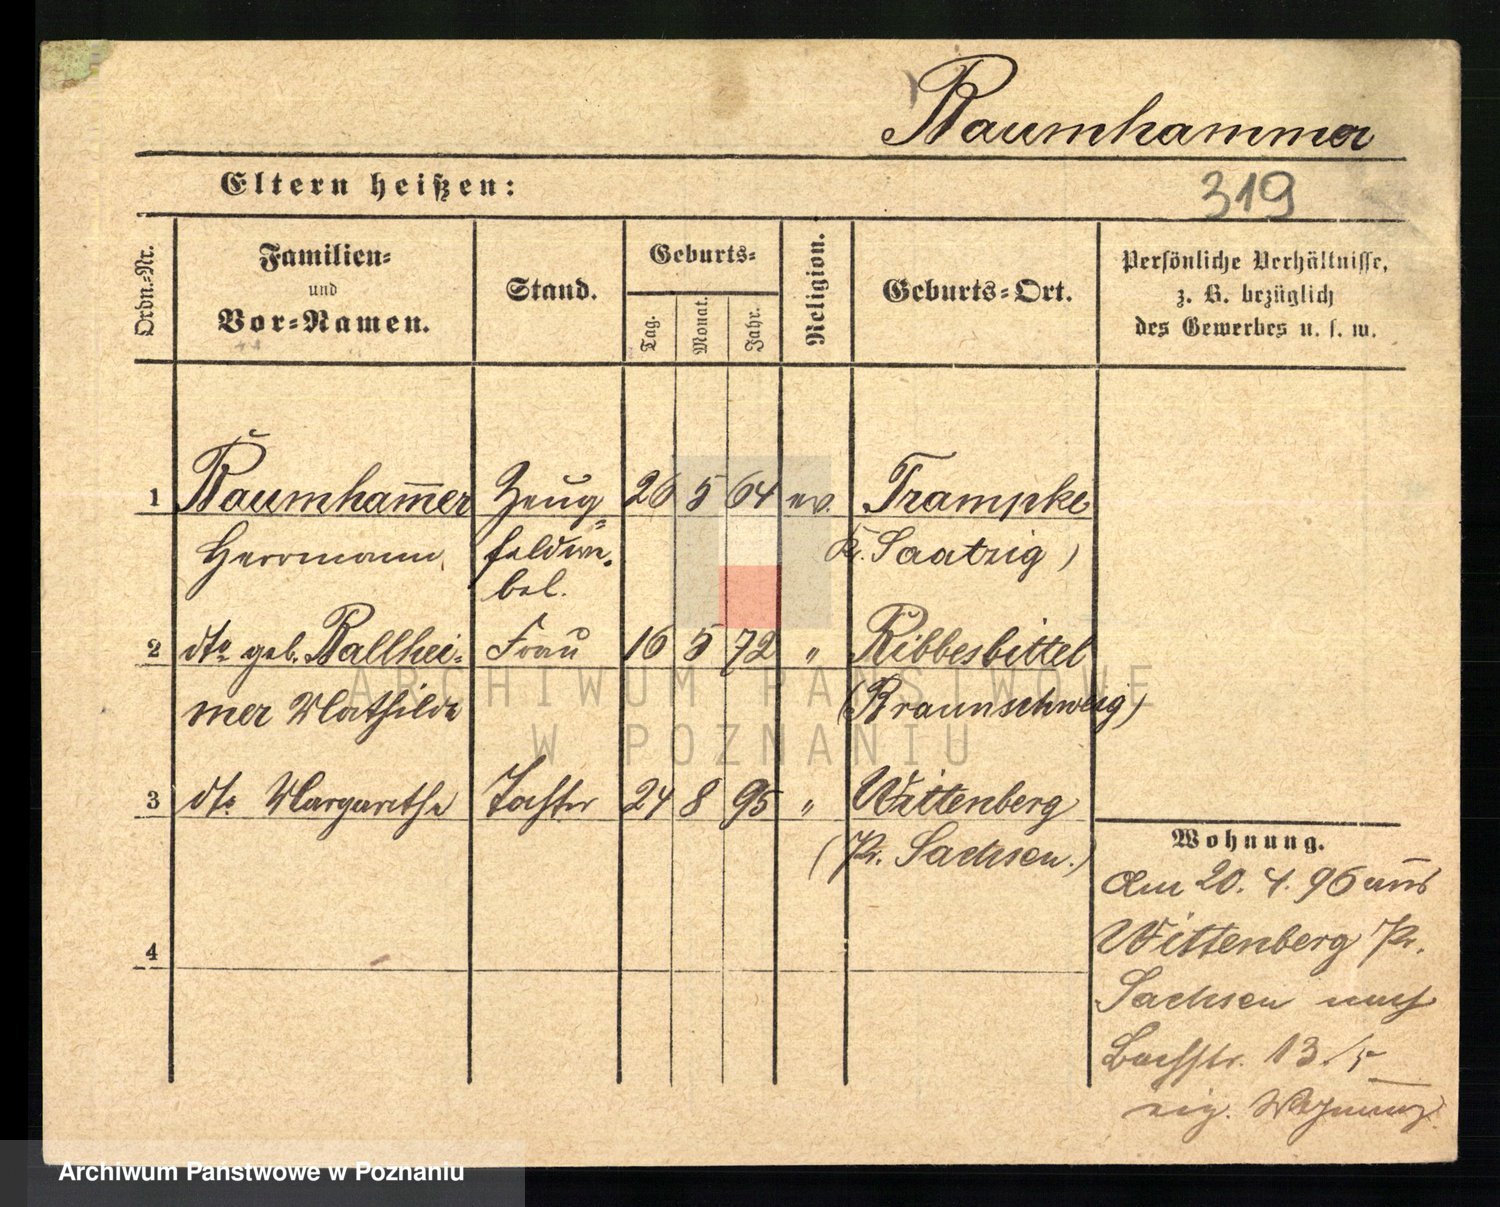 Baumhammer
Eltern heißen:
319
Ordn.=Nr.
Familien=
und
Vor=Namen.
Stand.
Geburts=
Tag.
Monat.
Jahr.
Religion.
Geburts=Ort.
Persönliche Verhältnisse,
z. B. bezüglich
des Gewerbes u. s. w.
1 Baumham̅er Zeug= 26 5 64 ev. Trampke
Herrmann feldwe. Kr. Saatzig)
bel.
2 dto geb. Ballhei= Frau 16 5 72 " Ribbesbittel
mer Mathilde (Braunschweig)
3 dto Margarethe Tochter 24 8 95 " Wittenberg
(Pr. Sachsen.)
4
Wohnung.
Am 20. 4. 96 aus
Wittenberg Pr.
Sachsen nach
Bachstr. 13
eig. Wohnung.
ARCHIWUM PAŃSTWOWE
W POZNANIU
Archiwum Państwowe w Poznaniu